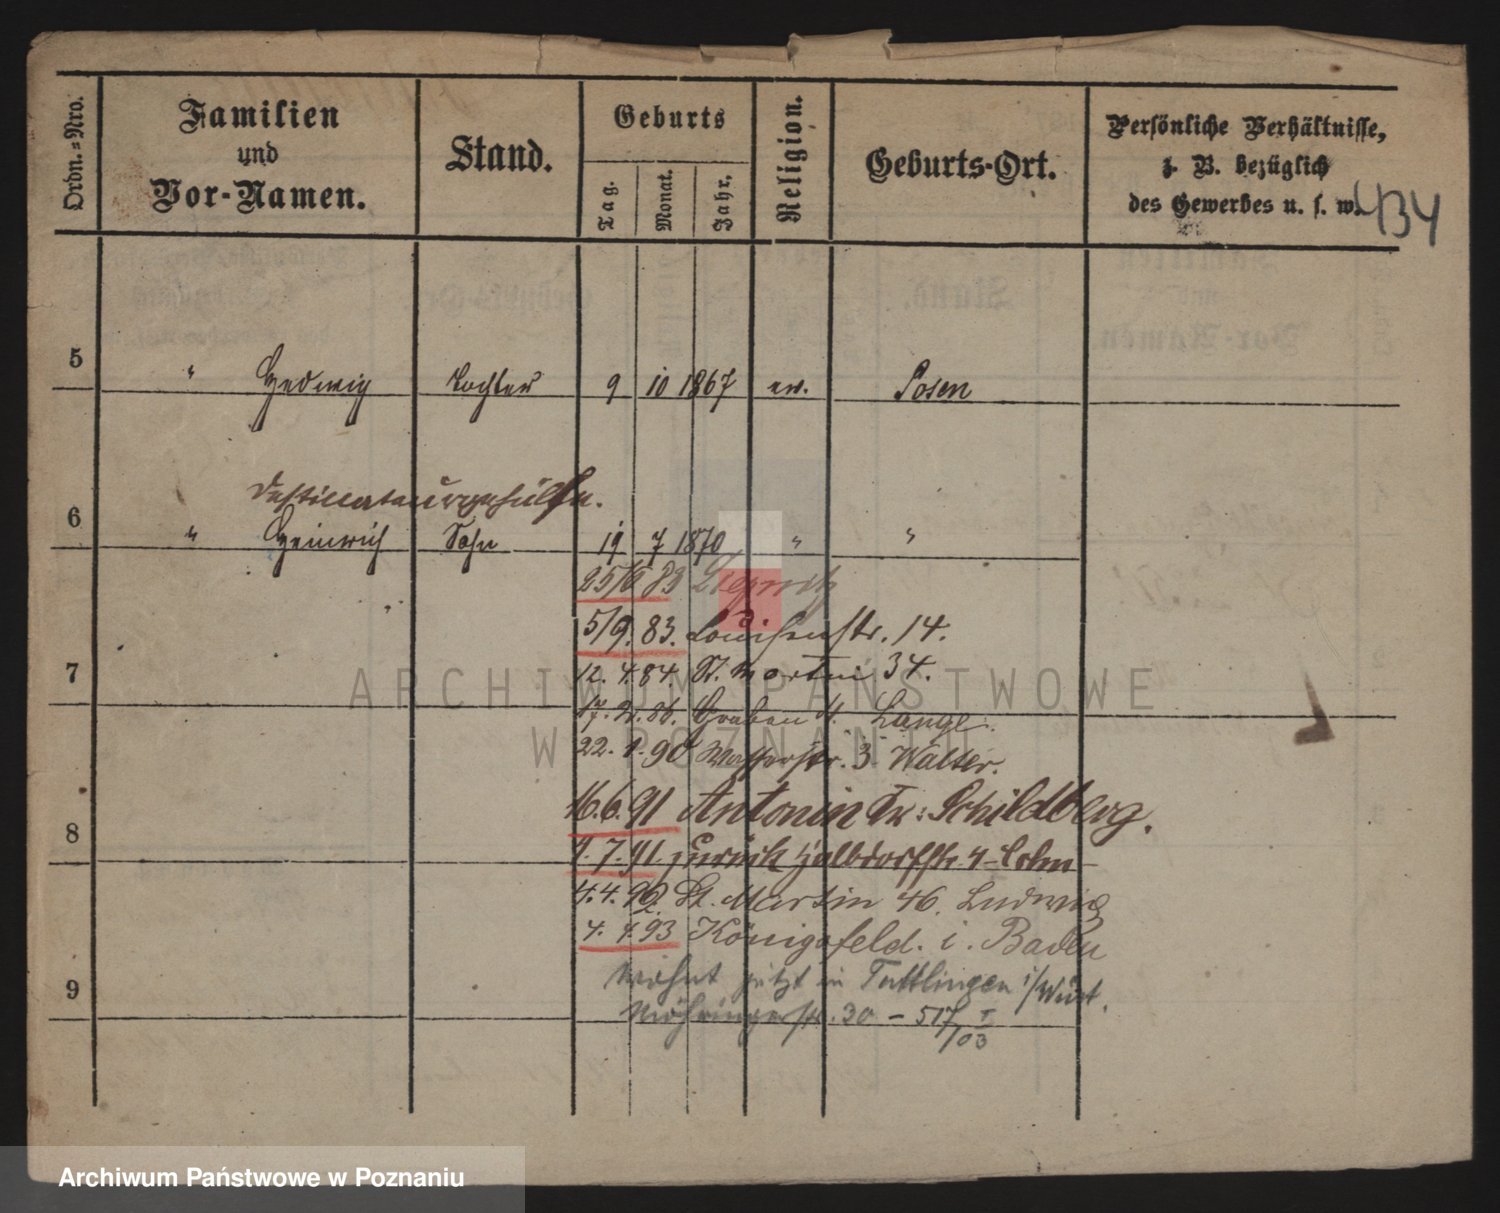 Ordn.=Nro.
Familien
und
Vor-Namen.
Stand.
Geburts
Tag.
Monat.
Jahr.
Religion.
Geburts-Ort.
Persönliche Verhältnisse,
z. B. bezüglich
des Gewerbes u. s. w.
434
5 " Hedwig Tochter 9 10 1867 ev. Posen
Destillateurgehülfe.
6 " Heinrich Sohn 19 7 1870 " "
83 Liegnitz
5/9. 83. Louisenstr. 14.
7
12. 4. 84. St. Martin 34.
86. Graben 4. Lange.
22. 1. 90 Wasserstr. 3 Walter.
16. 6. 91 Antonin Kr: Schildberg.
8
9. 7. 91. zurück Halbdorfstr. 4
4. 4. 92. St. Martin 46. Ludwig
4. 4. 93 Königsfeld. i. Baden
9
Wohnt jetzt in Tuttlingen i/Würt.
Möhringerstr. 30 – 517 I/03
ARCHIWUM PAŃSTWOWE
W POZNANIU
Archiwum Państwowe w Poznaniu